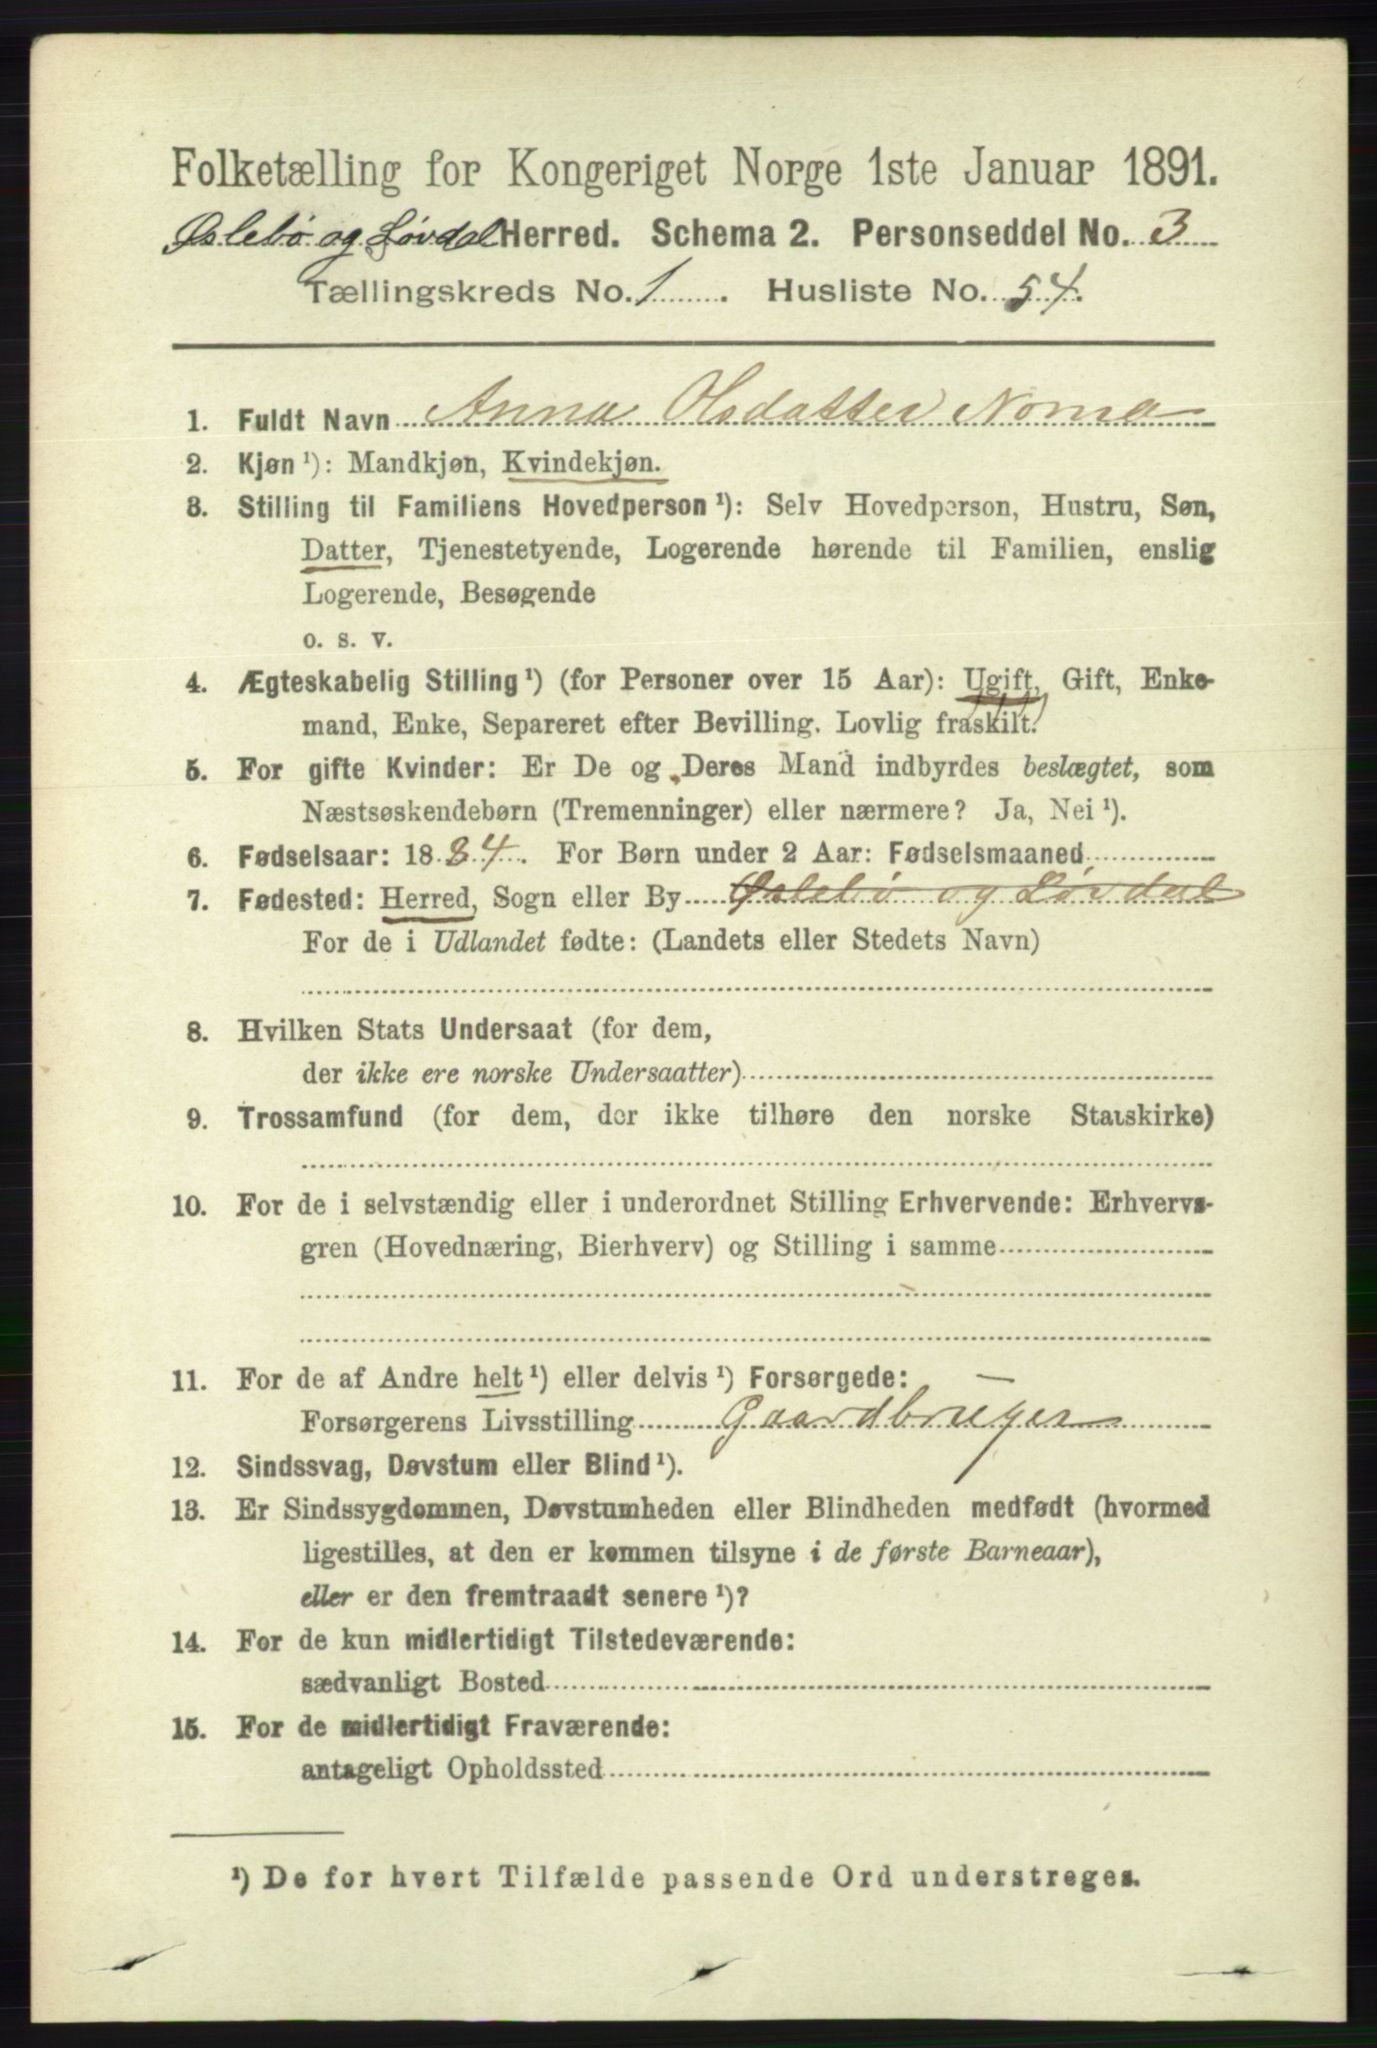 Folketælling for Kongeriget Norge 1ste Januar 1891.
Øslebø og Løvdal Herred. Schema 2. Personseddel No. 3
Tællingskreds No. 1. Husliste No. 54.
1. Fuldt Navn Anna Olsdatter Noma
2. Kjøn ¹): Mandkjøn, Kvindekjøn.
3. Stilling til Familiens Hovedperson ¹): Selv Hovedperson, Hustru, Søn,
Datter, Tjenestetyende, Logerende hørende til Familien, enslig
Logerende, Besøgende
o. s. v.
4. Ægteskabelig Stilling ¹) (for Personer over 15 Aar): Ugift, Gift, Enke-
mand, Enke, Separeret efter Bevilling. Lovlig fraskilt.
5. For gifte Kvinder: Er De og Deres Mand indbyrdes beslægtet, som
Næstsøskendebørn (Tremenninger) eller nærmere? Ja, Nei ¹).
6. Fødselsaar: 1884. For Børn under 2 Aar: Fødselsmaaned
7. Fødested: Herred, Sogn eller By Øslebø og Løvdal
For de i Udlandet fødte: (Landets eller Stedets Navn)
8. Hvilken Stats Undersaat (for dem,
der ikke ere norske Undersaatter)
9. Trossamfund (for dem, der ikke tilhøre den norske Statskirke)
10. For de i selvstændig eller i underordnet Stilling Erhvervende: Erhvervs-
gren (Hovednæring, Bierhverv) og Stilling i samme
11. For de af Andre helt ¹) eller delvis ¹) Forsørgede:
Forsørgerens Livsstilling Gaardbruger
12. Sindssvag, Døvstum eller Blind ¹).
13. Er Sindssygdommen, Døvstumheden eller Blindheden medfødt (hvormed
ligestilles, at den er kommen tilsyne i de første Barneaar),
eller er den fremtraadt senere ¹)?
14. For de kun midlertidigt Tilstedeværende:
sædvanligt Bosted
15. For de midlertidigt Fraværende:
antageligt Opholdssted
¹) De for hvert Tilfælde passende Ord understreges.